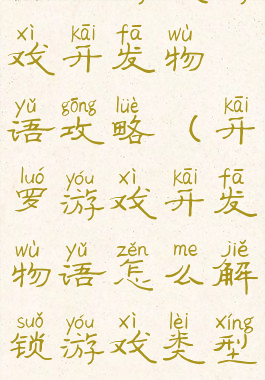 xì kāi fā wù
戏开发物
yǔ gōng lüè kāi
语攻略（开
luó yóu xì kāi fā
罗游戏开发
wù yǔ zěn me jiě
物语怎么解
suǒ yóu xì lèi xíng
锁游戏类型